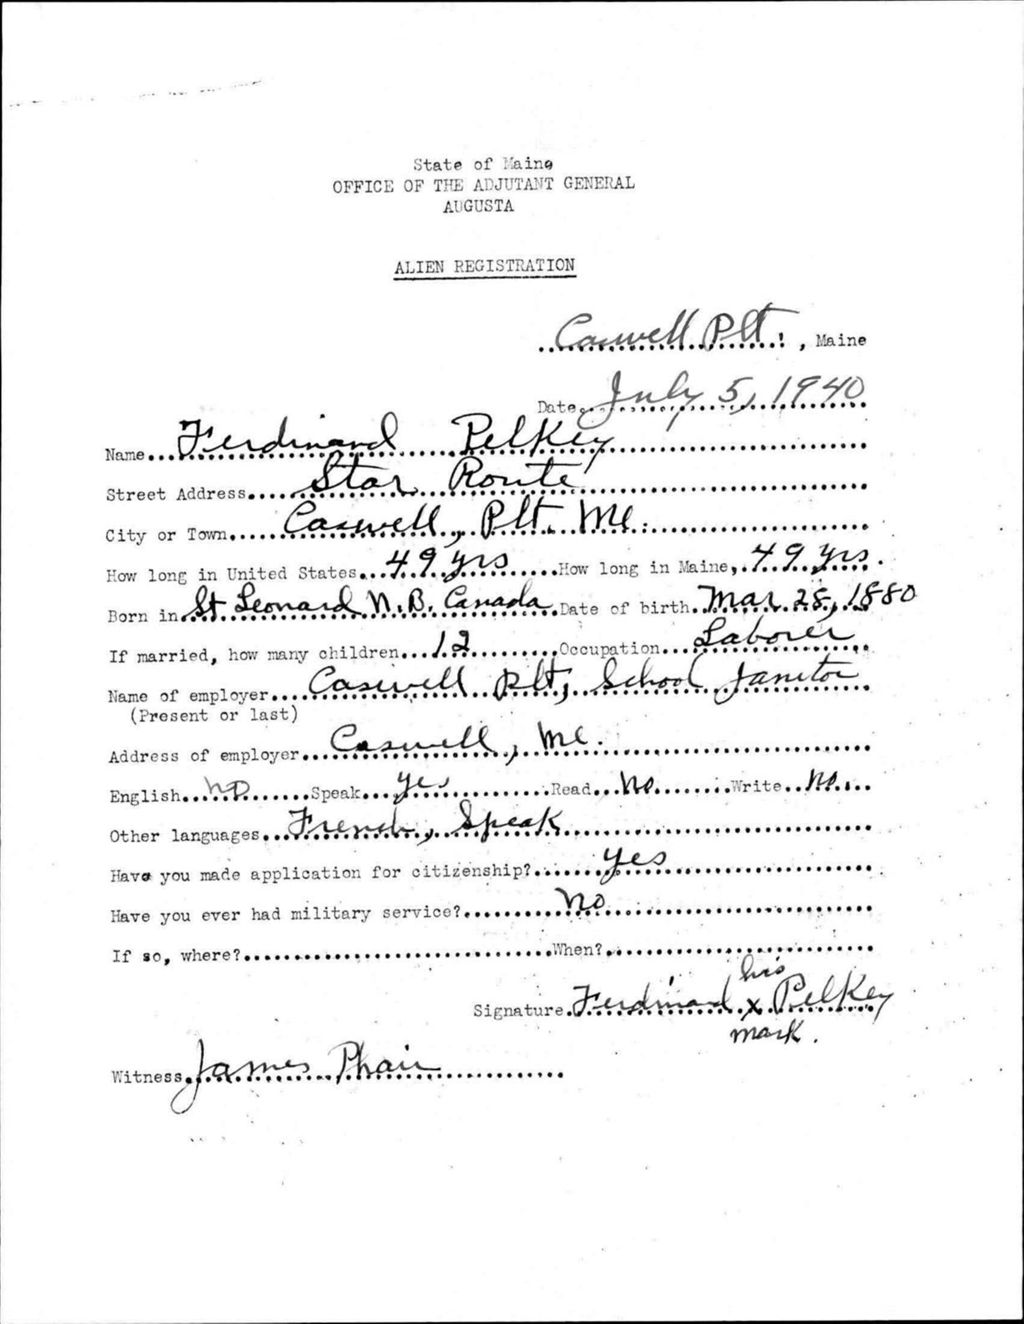 State of Maine
OFFICE OF THE ADJUTANT GENERAL
AUGUSTA
ALIEN REGISTRATION
Caswell Plt., Maine
Date July 5, 1940
Name Ferdinand Pelkey
Street Address Star Route
City or Town Caswell, Plt. Me.
How long in United States 49 yrs How long in Maine, 49 yrs.
Born in St Leonard N.B. Canada Date of birth Mar 28, 1880
If married, how many children 12 Occupation Laborer
Name of employer Caswell Plt, School Janitor
(Present or last)
Address of employer Caswell, Me.
English no Speak yes Read No Write No.
Other languages French, Speak
Have you made application for citizenship? yes
Have you ever had military service? no
If so, where? When?
his
Signature Ferdinand x Pelkey
mark.
Witness James Phair